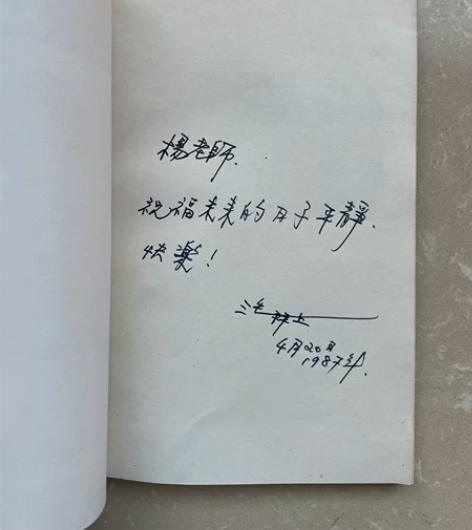 楊老師.
祝福未来的日子平靜.
快樂!
三毛 拜上
4月20日
1987年.